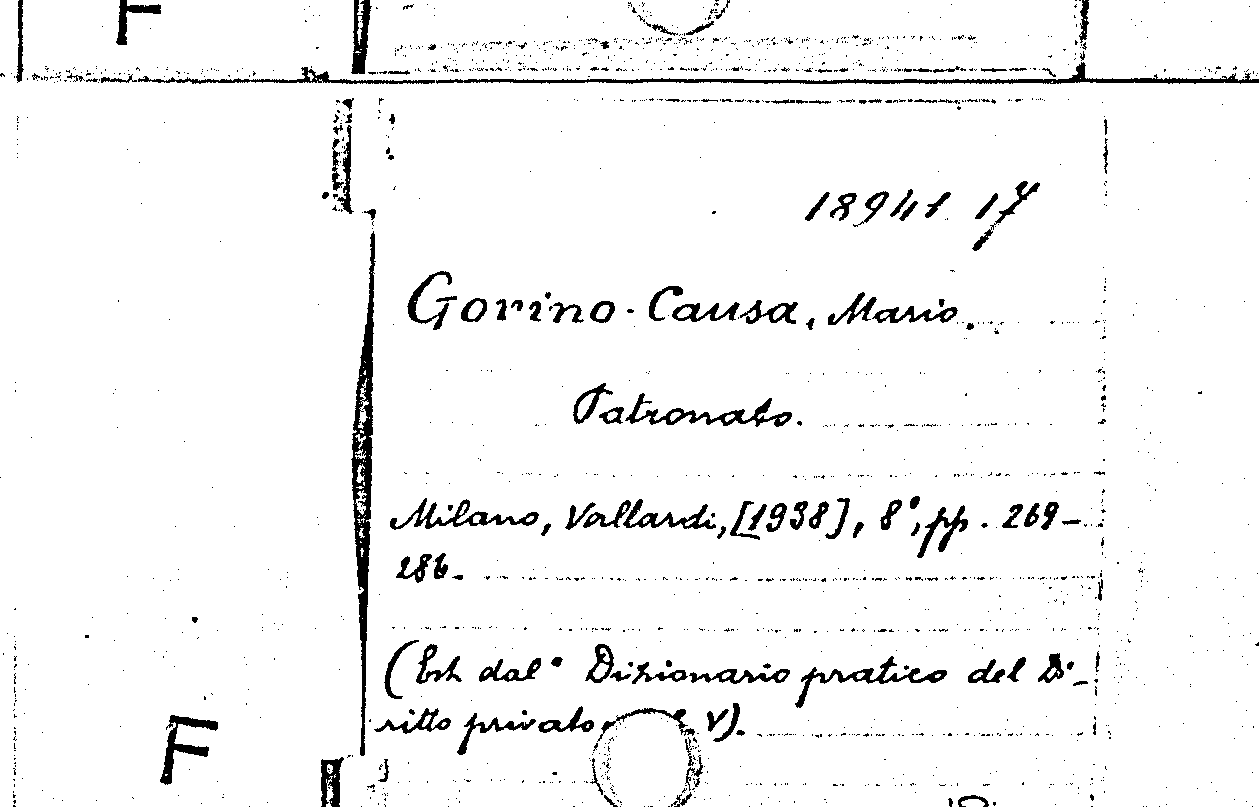 F
18941 17
Gorino-Causa, Mario.
Patronato.
Milano, Vallardi, [1938], 8°, pp. 269-
286.
(Est. dal " Dizionario pratico del Di-
ritto privato V).
F